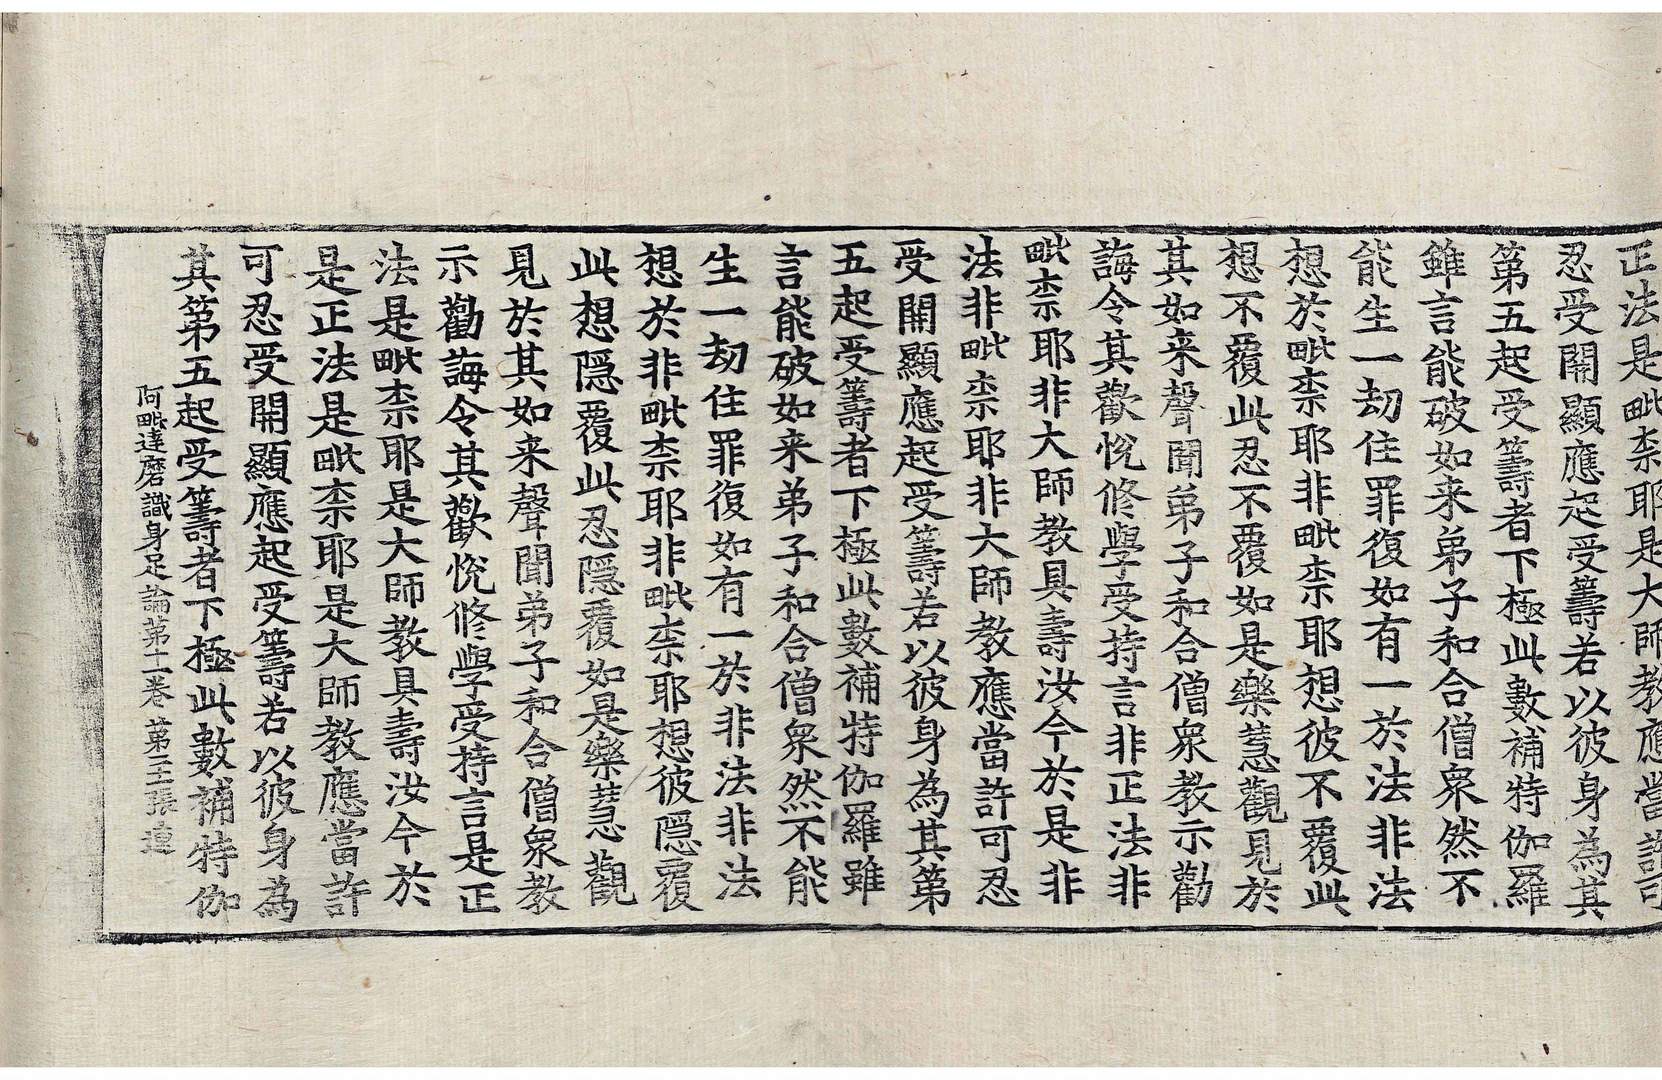 正法是毗柰耶是大師教應當許可
忍受開顯應起受籌若以彼身為其
第五起受籌者下極此數補特伽羅
雖言能破如来弟子和合僧衆然不
能生一劫住罪復如有一於法非法
想於毗柰耶非毗柰耶想彼不覆此
想不覆此忍不覆如是樂慧觀見於
其如来聲聞弟子和合僧衆教示勸
誨令其歡悅修學受持言非正法非
毗柰耶非大師教具壽汝今於是非
法非毗柰耶非大師教應當許可忍
受開顯應起受籌若以彼身為其第
五起受籌者下極此數補特伽羅雖
言能破如来弟子和合僧衆然不能
生一劫住罪復如有一於非法非法
想於非毗柰耶非毗柰耶想彼隱覆
此想隱覆此忍隱覆如是樂慧觀
見於其如来聲聞弟子和合僧衆教
示勸誨令其歡悅修學受持言是正
法是毗柰耶是大師教具壽汝今於
是正法是毗柰耶是大師教應當許
可忍受開顯應起受籌若以彼身為
其第五起受籌者下極此數補特伽
阿毗達磨識身足論第十一卷 第三張 遑